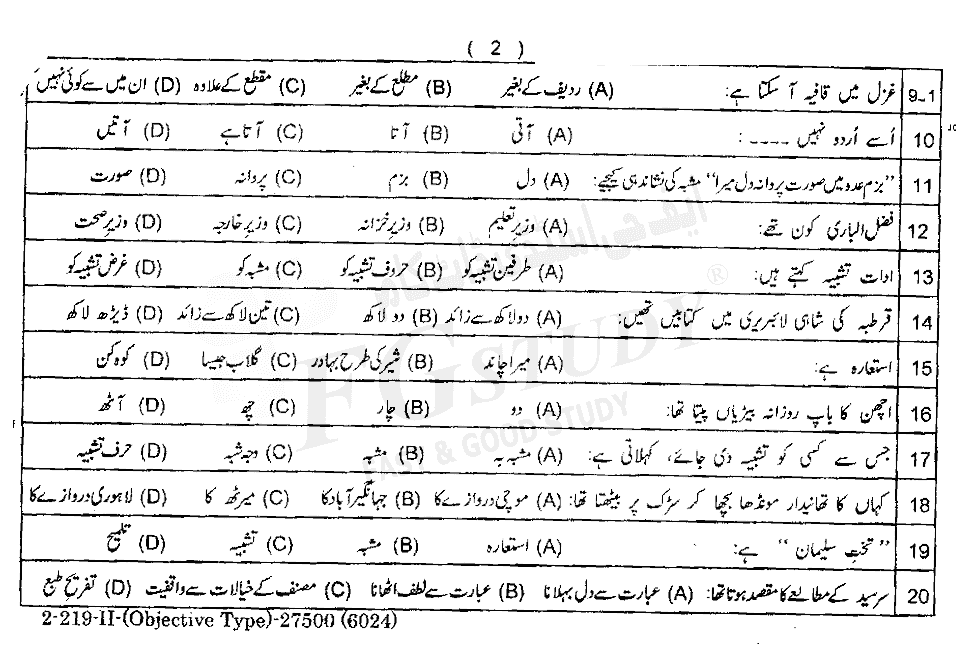 ( 2 )
9-1 غزل میں قافیہ آ سکتا ہے: (A) ردیف کے بغیر (B) مطلع کے بغیر (C) مقطع کے علاوہ (D) ان میں سے کوئی نہیں
10 اُسے اُردو نہیں ----: (A) آتی (B) آتا (C) آتا ہے (D) آتیں
11 "بزمِ عدو میں صورت پروانہ دل میرا" مشبہ کی نشاندہی کیجیے: (A) دل (B) بزم (C) پروانہ (D) صورت
12 فضل الباری کون تھے: (A) وزیرِ تعلیم (B) وزیرِ خزانہ (C) وزیرِ خارجہ (D) وزیرِ صحت
13 ادات تشبیہ کہتے ہیں: (A) طرفین تشبیہ کو (B) حروف تشبیہ کو (C) مشبہ کو (D) غرض تشبیہ کو
14 قرطبہ کی شاہی لائبریری میں کتابیں تھیں: (A) دو لاکھ سے زائد (B) دو لاکھ (C) تین لاکھ سے زائد (D) ڈیڑھ لاکھ
15 استعارہ ہے: (A) میرا چاند (B) شیر کی طرح بہادر (C) گلاب جیسا (D) کوہ کن
16 اچھن کا باپ روزانہ بیڑیاں پیتا تھا: (A) دو (B) چار (C) چھ (D) آٹھ
17 جس سے کسی کو تشبیہ دی جائے، کہلاتی ہے: (A) مشبہ بہ (B) مشبہ (C) وجہ شبہ (D) حرف تشبیہ
18 کہاں کا تھانیدار مونڈھا بچھا کر سڑک پر بیٹھتا تھا: (A) موچی دروازے کا (B) جہانگیر آباد کا (C) میرٹھ کا (D) لاہوری دروازے کا
19 "تختِ سلیمان" ہے: (A) استعارہ (B) مشبہ (C) تشبیہ (D) تلمیح
20 سرسید کے مطالعے کا مقصد ہوتا تھا: (A) عبارت سے دل بہلانا (B) عبارت سے لطف اٹھانا (C) مصنف کے خیالات سے واقفیت (D) تفریح طبع
2-219-II-(Objective Type)-27500 (6024)
FG STUDY ®
EASY & GOOD STUDY